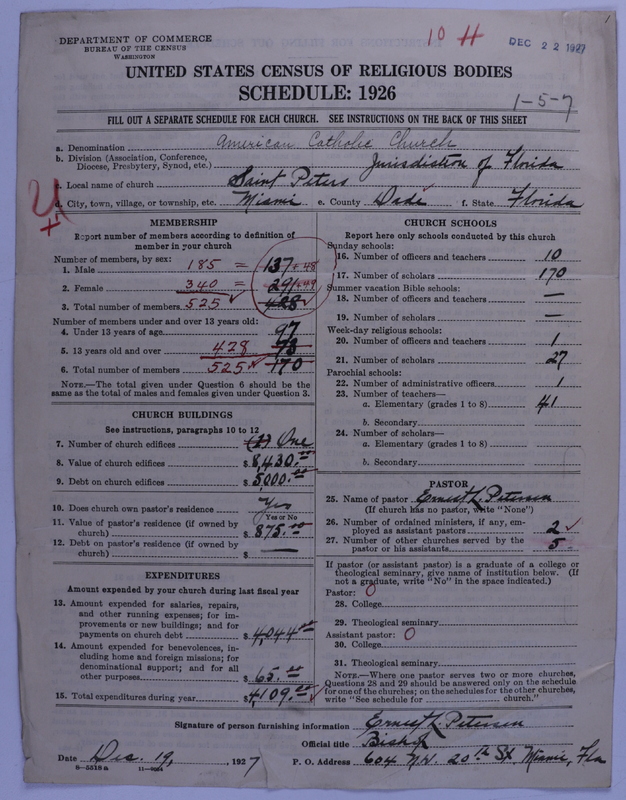 DEPARTMENT OF COMMERCE
BUREAU OF THE CENSUS
WASHINGTON
10 H
DEC 22 1927
UNITED STATES CENSUS OF RELIGIOUS BODIES
SCHEDULE: 1926
1-5-7
FILL OUT A SEPARATE SCHEDULE FOR EACH CHURCH. SEE INSTRUCTIONS ON THE BACK OF THIS SHEET
a. Denomination American Catholic Church
b. Division (Association, Conference, Diocese, Presbytery, Synod, etc.) Jurisdiction of Florida
c. Local name of church Saint Peters
d. City, town, village, or township, etc. Miami e. County Dade f. State Florida
MEMBERSHIP
Report number of members according to definition of
member in your church
Number of members, by sex:
1. Male 185 = 137 + 48
2. Female 340 = 291 + 49
3. Total number of members 525 428
Number of members under and over 13 years old:
4. Under 13 years of age 97
5. 13 years old and over 428 73
6. Total number of members 525 170
NOTE.—The total given under Question 6 should be the
same as the total of males and females given under Question 3.
CHURCH BUILDINGS
See instructions, paragraphs 10 to 12
7. Number of church edifices (1) One
8. Value of church edifices $ 8,430.00
9. Debt on church edifices $ 5,000.00
10. Does church own pastor's residence Yes
Yes or No
11. Value of pastor's residence (if owned by
church) $ 875.00
12. Debt on pastor's residence (if owned by
church) $ —
EXPENDITURES
Amount expended by your church during last fiscal year
13. Amount expended for salaries, repairs,
and other running expenses; for im-
provements or new buildings; and for
payments on church debt $ 4,044.00
14. Amount expended for benevolences, in-
cluding home and foreign missions; for
denominational support; and for all
other purposes $ 65.00
15. Total expenditures during year $ 4,109.00
CHURCH SCHOOLS
Report here only schools conducted by this church
Sunday schools:
16. Number of officers and teachers 10
17. Number of scholars 170
Summer vacation Bible schools:
18. Number of officers and teachers —
19. Number of scholars —
Week-day religious schools:
20. Number of officers and teachers 1
21. Number of scholars 27
Parochial schools:
22. Number of administrative officers 1
23. Number of teachers—
a. Elementary (grades 1 to 8) 41
b. Secondary
24. Number of scholars—
a. Elementary (grades 1 to 8)
b. Secondary
PASTOR
25. Name of pastor Ernest L. Petersen
(If church has no pastor, write "None")
26. Number of ordained ministers, if any, em-
ployed as assistant pastors 2
27. Number of other churches served by the
pastor or his assistants 5
If pastor (or assistant pastor) is a graduate of a college or
theological seminary, give name of institution below. (If
not a graduate, write "No" in the space indicated.)
Pastor: 0
28. College
29. Theological seminary
Assistant pastor: 0
30. College
31. Theological seminary
NOTE.—Where one pastor serves two or more churches,
Questions 28 and 29 should be answered only on the schedule
for one of the churches; on the schedules for the other churches,
write "See schedule for church."
Signature of person furnishing information Ernest L. Petersen
Official title Bishop
Date Dec. 19, 1927 P. O. Address 604 N.W. 20th St, Miami, Fla
8—5518a 11—9064